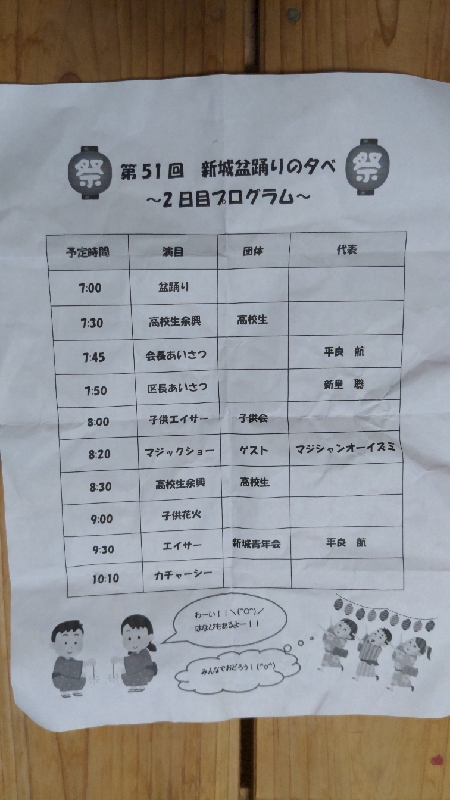 祭 第51回 新城盆踊りの夕べ 祭
～2日目プログラム～
予定時間 演目 団体 代表
7:00 盆踊り
7:30 高校生余興 高校生
7:45 会長あいさつ 平良 航
7:50 区長あいさつ 新里 聡
8:00 子供エイサー 子供会
8:20 マジックショー ゲスト マジシャンオーイズミ
8:30 高校生余興 高校生
9:00 子供花火
9:30 エイサー 新城青年会 平良 航
10:10 カチャーシー
わーい！！＼(^O^)／
はなびもあるよー！！
みんなでおどろう！(^o^)